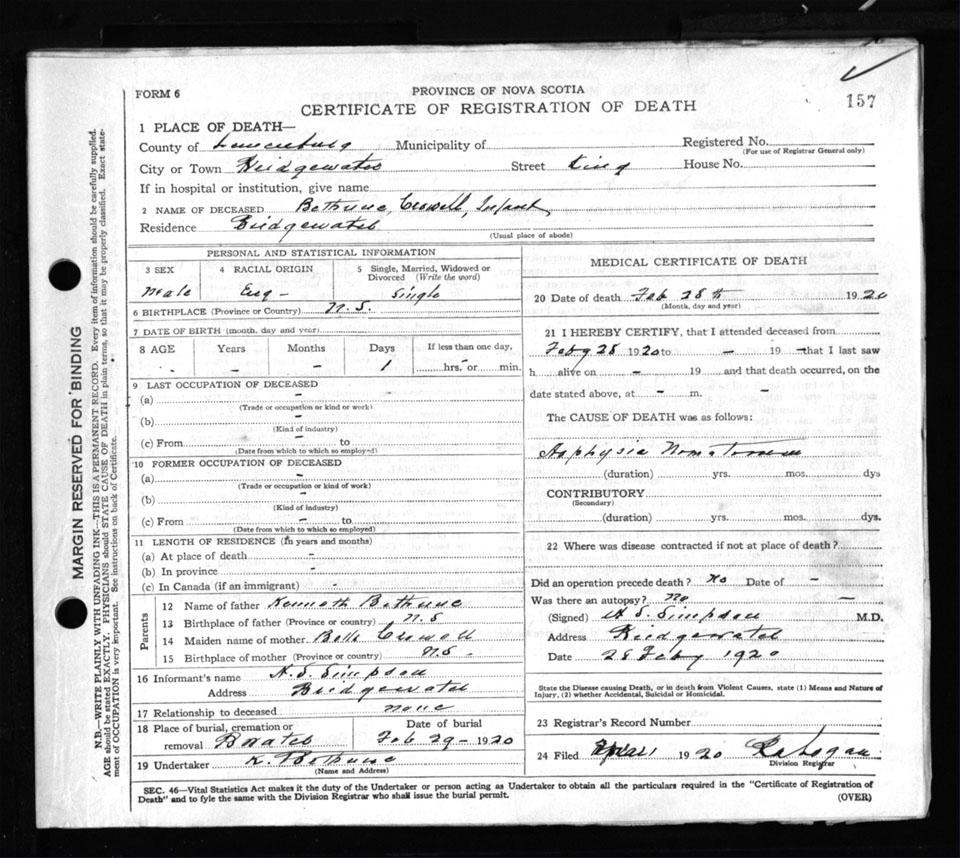 FORM 6
PROVINCE OF NOVA SCOTIA
CERTIFICATE OF REGISTRATION OF DEATH
157
1 PLACE OF DEATH—
County of Lunenburg Municipality of Registered No.
(For use of Registrar General only)
City or Town Bridgewater Street King House No.
If in hospital or institution, give name
2 NAME OF DECEASED Bethune, Crowell, Infant
Residence Bridgewater
(Usual place of abode)
PERSONAL AND STATISTICAL INFORMATION
3 SEX 4 RACIAL ORIGIN 5 Single, Married, Widowed or Divorced (Write the word)
Male Eng - Single
6 BIRTHPLACE (Province or Country) N.S.
7 DATE OF BIRTH (month, day and year)
8 AGE Years Months Days If less than one day,
- - 1 hrs. or min.
9 LAST OCCUPATION OF DECEASED
(a) -
(Trade or occupation or kind or work)
(b) -
(Kind of industry)
(c) From - to
(Date from which to which so employed)
10 FORMER OCCUPATION OF DECEASED
(a) -
(Trade or occupation or kind of work)
(b) -
(Kind of industry)
(c) From - to
(Date from which to which so employed)
11 LENGTH OF RESIDENCE (In years and months)
(a) At place of death -
(b) In province -
(c) In Canada (if an immigrant) -
Parents
12 Name of father Kenneth Bethune
13 Birthplace of father (Province or country) N.S
14 Maiden name of mother Belle Crowell
15 Birthplace of mother (Province or country) N.S.
16 Informant's name H.S. Simpson
Address Bridgewater
17 Relationship to deceased none
18 Place of burial, cremation or removal B.Water Date of burial Feb 29 - 1920
19 Undertaker K. Bethune
(Name and Address)
MEDICAL CERTIFICATE OF DEATH
20 Date of death Feb 28th 1920
(Month, day and year)
21 I HEREBY CERTIFY, that I attended deceased from
Feby 28 1920 to - 19 - that I last saw
h alive on - 19 and that death occurred, on the
date stated above, at - m. -
The CAUSE OF DEATH was as follows:
Asphysia
(duration) yrs. mos. dys
CONTRIBUTORY
(Secondary)
(duration) yrs. mos. dys.
22 Where was disease contracted if not at place of death?
Did an operation precede death? No Date of -
Was there an autopsy? no
(Signed) H S. Simpson M.D.
Address Bridgewater
Date 28 Feby 1920
State the Disease causing Death, or in death from Violent Causes, state (1) Means and Nature of
Injury, (2) whether Accidental, Suicidal or Homicidal.
23 Registrar's Record Number
24 Filed 1920
Division Registrar
SEC. 46—Vital Statistics Act makes it the duty of the Undertaker or person acting as Undertaker to obtain all the particulars required in the "Certificate of Registration of
Death" and to fyle the same with the Division Registrar who shall issue the burial permit. (OVER)
MARGIN RESERVED FOR BINDING
N.B.—WRITE PLAINLY WITH UNFADING INK—THIS IS A PERMANENT RECORD. Every item of information should be carefully supplied.
AGE should be stated EXACTLY. PHYSICIANS should STATE CAUSE OF DEATH in plain terms, so that it may be properly classified. Exact state-
ment of OCCUPATION is very important. See instructions on back of Certificate.